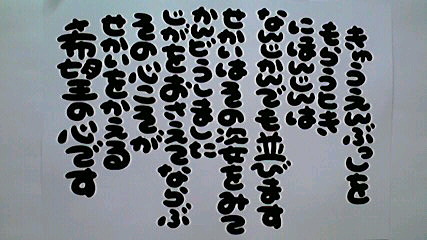 きゅうえんぶっしを
もらうとき
にほんじんは
なんじかんでも並びます
せかいはその姿をみて
かんどうしました
じがをおさえてならぶ
その心こそが
せかいをかえる
希望の心です